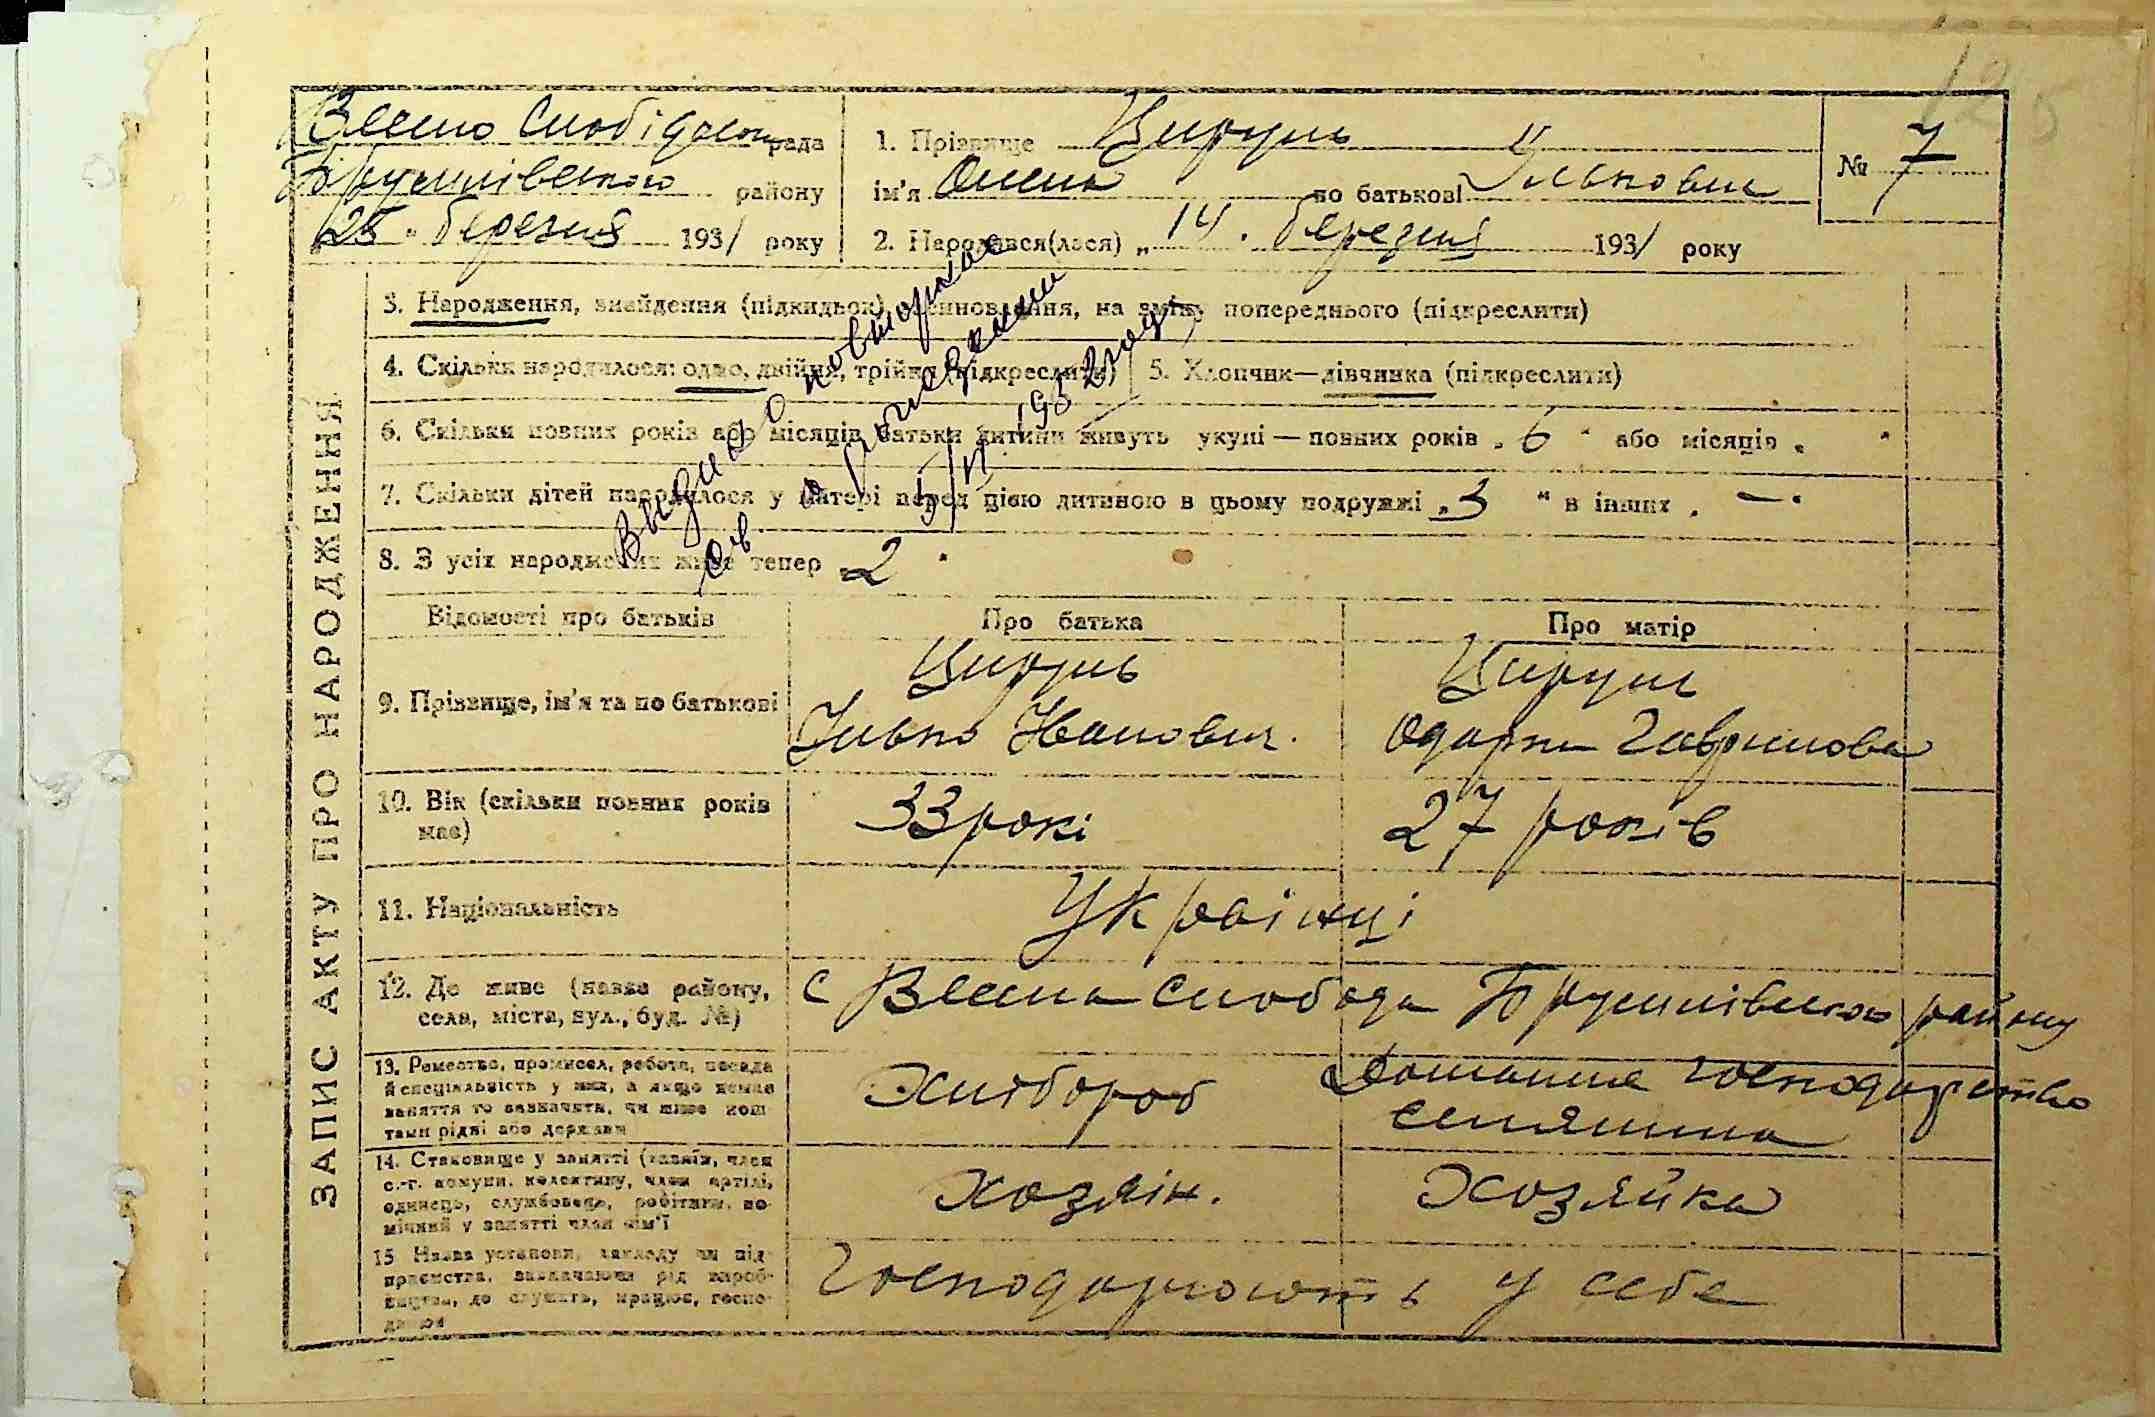 125
Велико Слобідська рада
Брусилівського району
„25“ березня 1931 року
1. Прізвище Цируль
ім'я Олена по батькові Ильковна
№ 7
2. Народився(лася) „14“ березня 1931 року
ЗАПИС АКТУ ПРО НАРОДЖЕННЯ
3. Народження, знайдення (підкидьок), усиновлення, на зміну попереднього (підкреслити)
4. Скільки народилося: одно, двійня, трійня (підкреслити) 5. Хлопчик—дівчинка (підкреслити)
6. Скільки повних років або місяців батьки дитини живуть укупі — повних років „6“ або місяців „ “
7. Скільки дітей народилося у матері перед цією дитиною в цьому подружжі „3“ в інших „—“
8. З усіх народжених живе тепер „2“
Выдано повторное
св. о рождении
5/VI 1952 год
Відомості про батьків Про батька Про матір
9. Прізвище, ім'я та по батькові
Цируль
Илько Иванович.
Цируль
Одарка Гаврилова
10. Вік (скільки повних років має)
33 рокі 27 років
11. Національність Українці
12. Де живе (назва району,
села, міста, вул., буд. №)
с Велика Слобода Брусилівського району
13. Ремество, промисел, робота, посада
й спеціальність у них, а якщо немає
заняття то зазначити, чи живе кош-
тами рідні або держави
Хлібороб
Домашнє господарство
селянина
14. Становище у занятті (хазяїн, член
с.-г. комуни, колективу, член артілі,
одинець, службовець, робітник, по-
мічний у занятті член сім'ї
Хозяін. Хозяйка
15 Назва установи, закладу чи під-
приємства, зазначаючи рід вироб-
ництва, де служить, працює, госпо-
дарює
Господарюють у себе